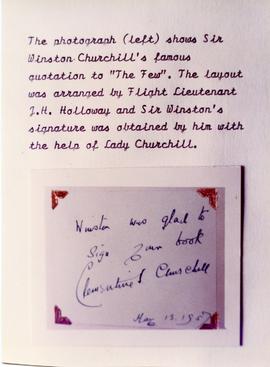 The photograph (left) shows Sir
Winston Churchill's famous
quotation to "The Few". The layout
was arranged by Flight Lieutenant
J.H. Holloway and Sir Winston's
signature was obtained by him with
the help of Lady Churchill.
Winston was glad to
sign your book
Clementine S Churchill
May 13. 195